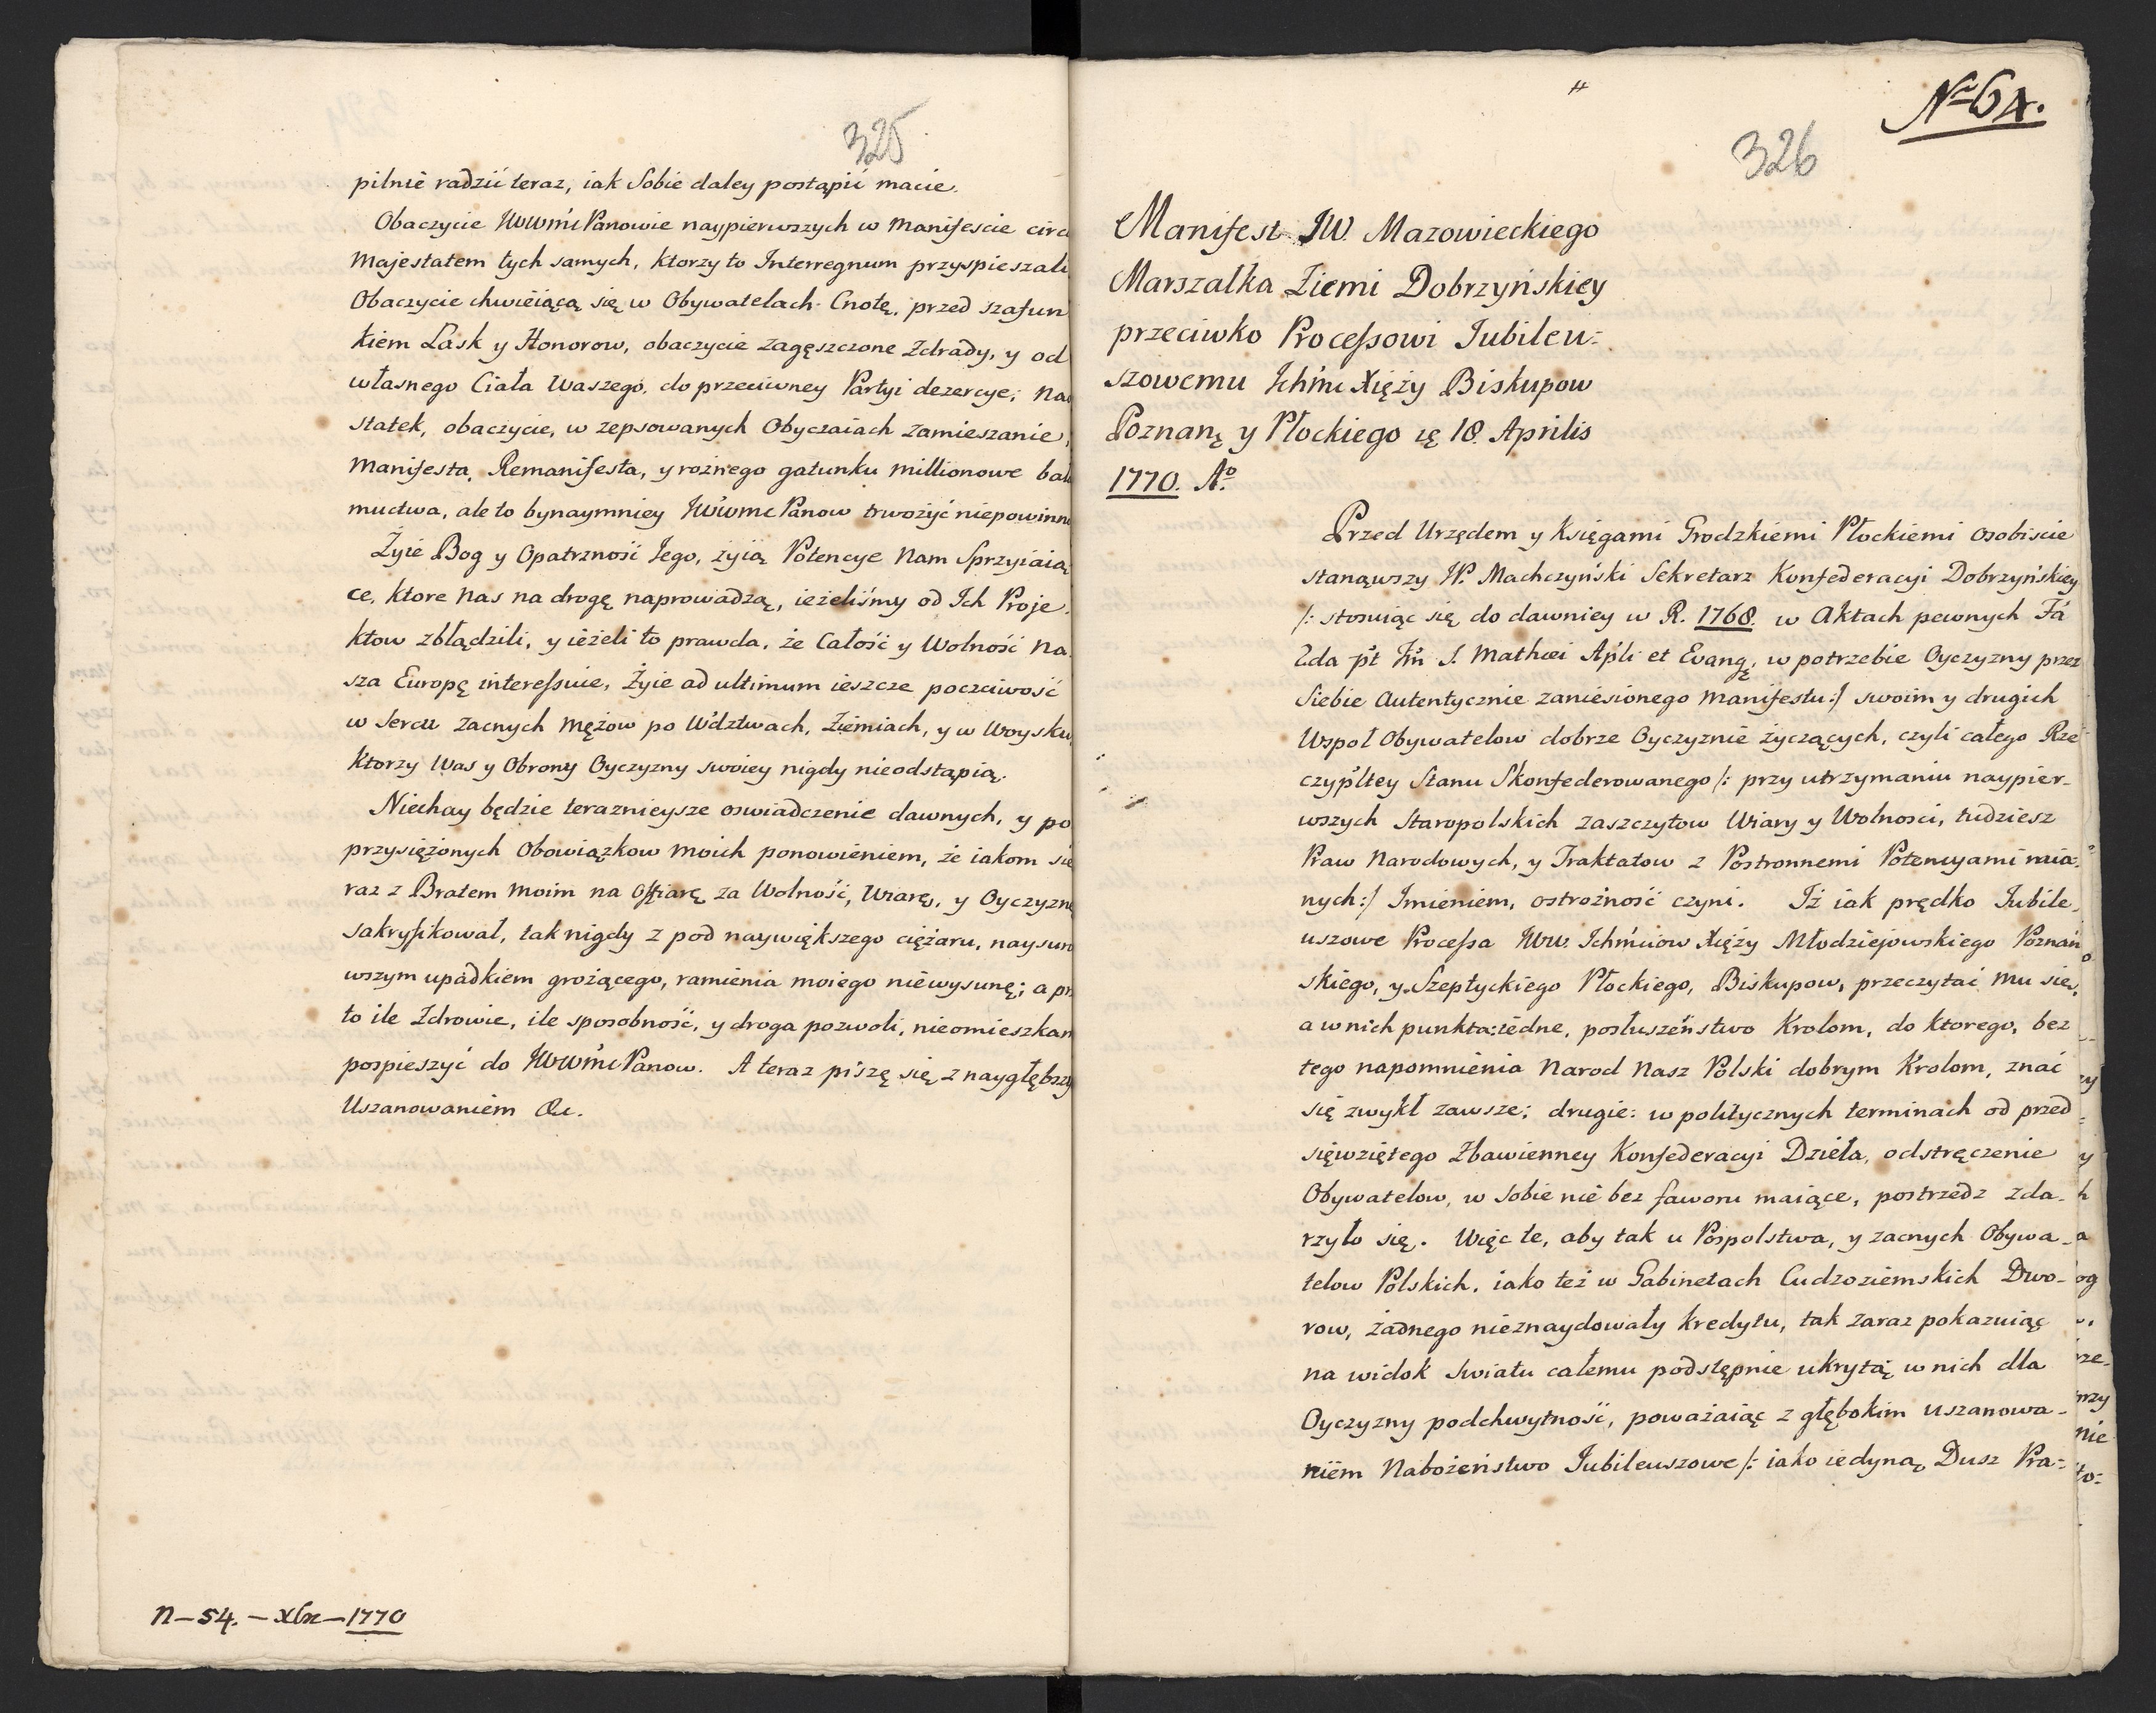 325
pilnie radzić teraz, iak Sobie daley postąpić macie.
Obaczycie JWWmć Panowie naypierwszych w Manifescie circa
Majestatem tych samych, ktorzy to Interregnum przyspieszali
Obaczycie chwieiącą się w Obywatelach Cnotę, przed szafun
kiem Łask y Honorow, obaczycie zagęszczone Zdrady, y od
własnego Ciała Waszego, do przeciwney Partyi dezercye; na
statek, obaczycie, w zepsowanych Obyczaiach zamieszanie,
Manifesta, Remanifesta, y rożnego gatunku millionowe bała
muctwa, ale to bynaymniey JWWmć Panow trwożyć niepowinno
Żyie Bog y Opatrzność Jego, żyią Potencye Nam Sprzyiaią
ce, ktore Nas na drogę naprowadzą, ieżeliśmy od Ich Proje
ktow zbłądzili, y ieżeli to prawda, że Całość y Wolność Na
sza Europę interessuie, Żyie ad ultimum ieszcze poczciwość
w Sercu zacnych Mężow po Wdztwach, Ziemiach, y w Woysku,
Ktorzy Was y Obrony Oyczyzny swoiey nigdy nieodstąpią.
Niechay będzie teraznieysze oswiadczenie dawnych, y po
przysiężonych Obowiązkow moich ponowieniem, że iakom się
raz z Bratem moim na offiarę za Wolność, Wiarę, y Oyczyznę
sakryfikował, tak nigdy z pod naywiększego ciężaru, naysuro
wszym upadkiem grożącego, ramienia moiego niewysunę; a prze
to ile Zdrowie, ile sposobność, y droga pozwoli, nieomieszkam
pospieszyć do JWWmć Panow. A teraz piszę się z naygłębszym
Uszanowaniem &c.
N–54. – Xbr – 1770
No 64.
326
Manifest JW. Mazowieckiego
Marszałka Ziemi Dobrzyńskiey
przeciwko Processowi Jubileu-
szowemu Ichmć Xięży Biskupow
Poznanę y Płockiego ię 18. Aprilis
1770. Ao.
Przed Urzędem y Księgami Grodzkiemi Płockiemi osobiscie
stanąwszy W. Machczyński Sekretarz Konfederacyi Dobrzyńskiey
/: stosuiąc się do dawniey w R. 1768. w Aktach pewnych Fa
2da pt Fm S. Mathæi Apli et Evang, w potrzebie Oyczyzny przez
Siebie Autentycznie zaniesionego Manifestu :/ swoim y drugich
Wspoł Obywatelow dobrze Oyczyznie życzących, czyli całego Rze
czypltey Stanu Skonfederowanego /: przy utrzymaniu naypier-
wszych Staropolskich zaszczytow Wiary y Wolnosci, tudziesz
Praw Narodowych, y Traktatow z Postronnemi Potencyami mia-
nych :/ Imieniem, ostrożność czyni. Iż iak prędko Jubile
uszowe Processa JWW. Ichmciow Xięży Młodziejowskiego Poznań
skiego, y Szeptyckiego Płockiego, Biskupow, przeczytać mu się,
a w nich punkta: iedne, posłuszeństwo Krolom, do ktorego, bez
tego napomnienia Narod Nasz Polski dobrym Krolom, znać
się zwykł zawsze; drugie: w politycznych terminach od przed
sięwziętego Zbawienney Konfederacyi Dzieła, odstręczenie
Obywatelow, w Sobie nie bez faworu maiące, postrzedz zda-
rzyło się. Więc te, aby tak u Pospolstwa, y zacnych Obywa-
telow Polskich, iako też w Gabinetach Cudzoziemskich Dwo-
row, żadnego nieznaydowały kredytu, tak zaraz pokazuiąc
na widok Swiatu całemu podstępnie ukrytą w nich dla
Oyczyzny podchwytność, poważaiąc z głębokim uszanowa-
niem Nabożeństwo Jubileuszowe /: iako iedyną Dusz Pra-